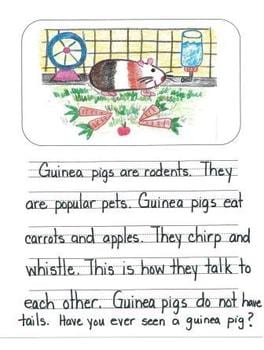 Guinea pigs are rodents. They
are popular pets. Guinea pigs eat
carrots and apples. They chirp and
whistle. This is how they talk to
each other. Guinea pigs do not have
tails. Have you ever seen a guinea pig?